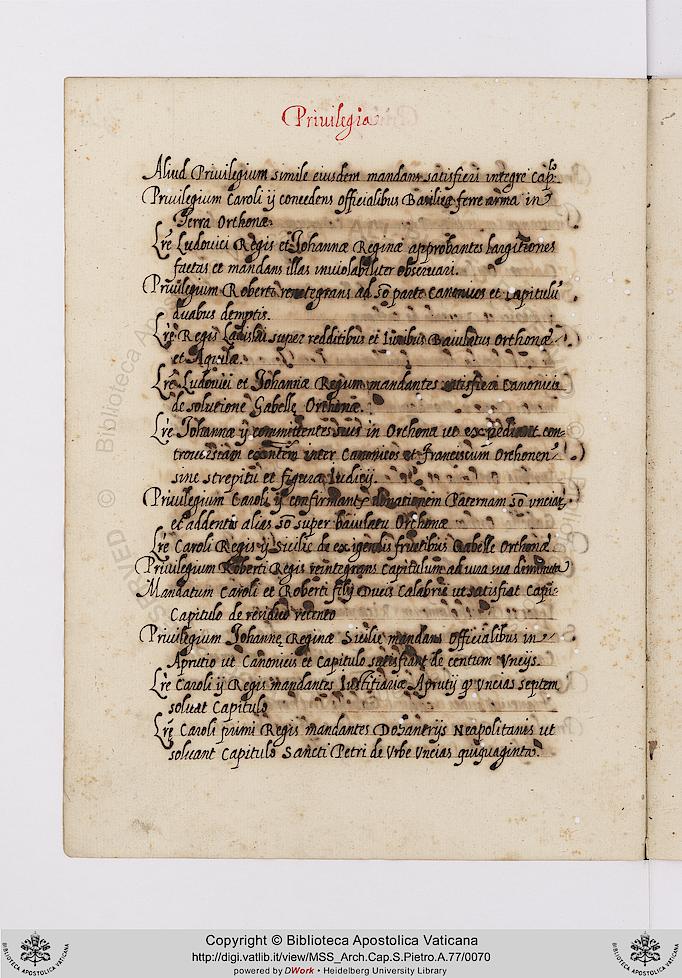 Priuilegia
Aliud Priuilegium simile eiusdem mandans satisfieri integre Caplo
Priuilegium Caroli ij concedens officialibus Basilicę ferre arma in
Terra Orthonæ.
Lrę Ludouici Regis et Johannæ Reginæ approbantes largitiones
factas et mandans illas inuiolabiliter obseruari.
Priuilegium Roberti reintegrans ad sõ parte Canonicos et Capitulũ
duabus demptis.
Lrę Regis Ladislai super redditibus et Iuribus Baiulatus Orthonæ
et Aquilæ.
Lrę Ludouici et Johannæ Regum mandantes satisfieri Canonicis
de solutione Gabellę Orthonæ.
Lrę Johannæ ij committentes suis in Orthona ut expediant con-
trouersiam inter Canonicos et Franciscum Orthonen
sine strepitu et figura Iudicij.
Priuilegium Caroli ij confirmant donationem Paternam sõ vnciar
et addentis alias sõ super baiulatu Orthonæ
Lrę Caroli Regis ij Sicilię de exigendis fructibus Gabellę Orthonæ
Priuilegium Roberti Regis reintegrans Capitulum ad vna sua deminuta
Mandatum Caroli et Roberti filij Ducis Calabrię ut satisfiat Capi-
Capitulo de residuo retento
Priuilegium Johannę Reginæ Sicilię mandans officialibus in
Aprutio ut Canonicis et Capitulo satisfiant de centum Vncijs.
Lrę Caroli ij Regis mandantes Iustitiariæ Aprutij ꝙ Vncias septem
soluat Capitulo
Lrę Caroli primi Regis mandantes Dohanerijs Neapolitanis ut
soluant Capitulo Sancti Petri de Vrbe Vncias quiquaginta.
© Biblioteca Apostolica Vaticana
Copyright © Biblioteca Apostolica Vaticana
http://digi.vatlib.it/view/MSS_Arch.Cap.S.Pietro.A.77/0070
powered by DWork • Heidelberg University Library